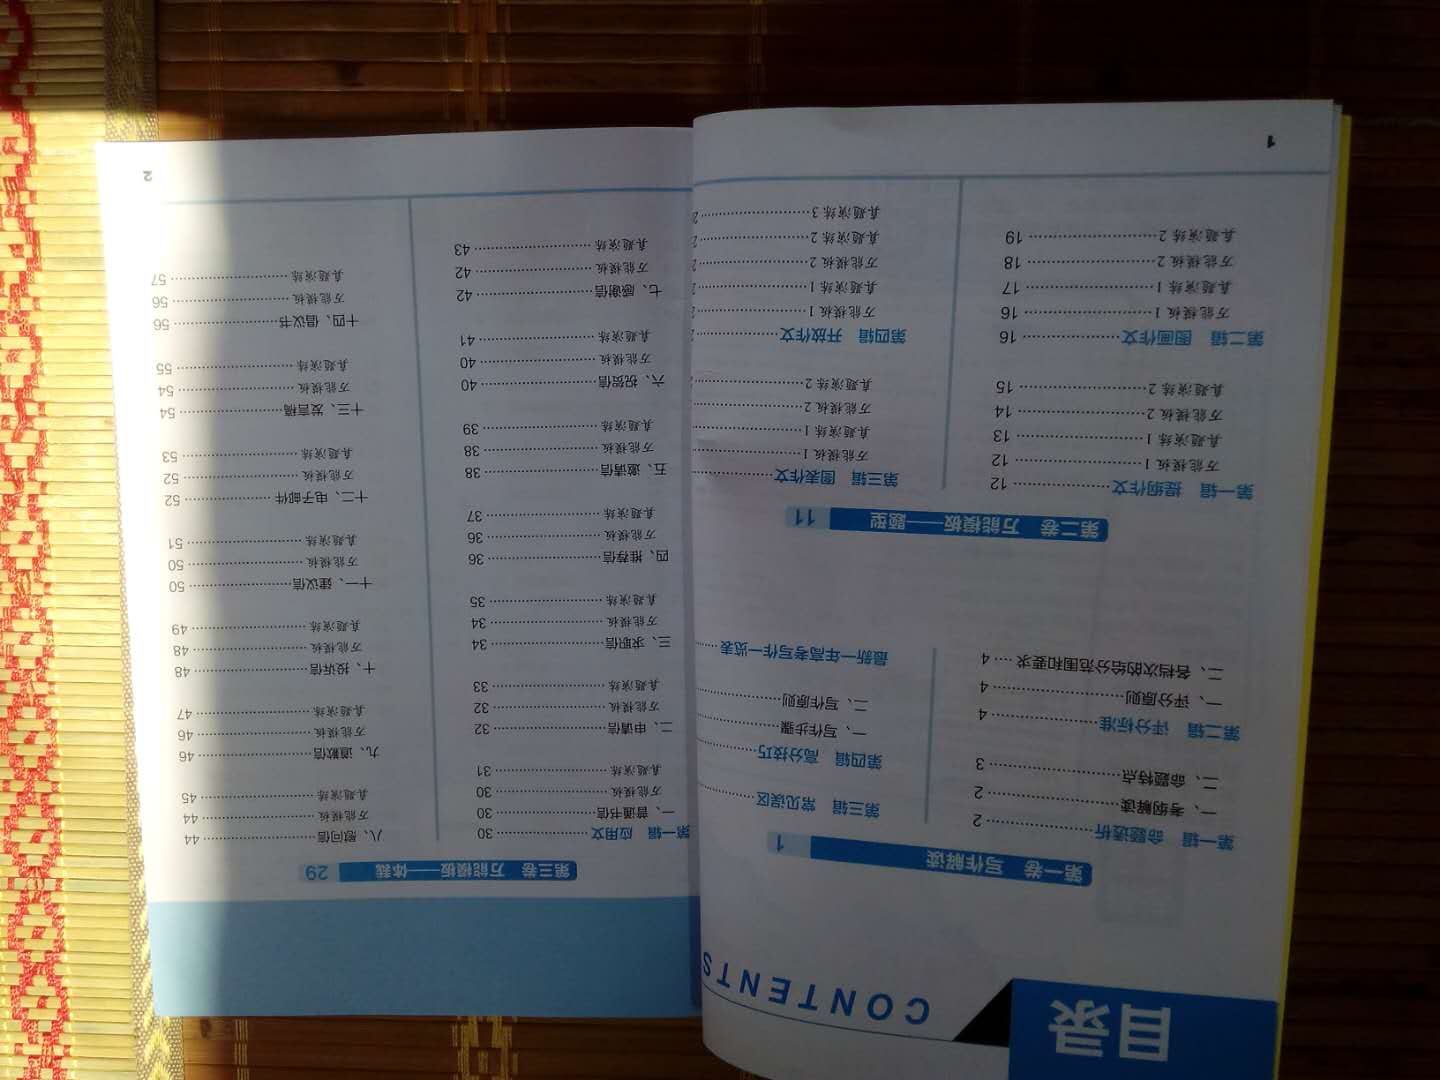 目录
CONTENTS
第一卷 写作解读 1
第一辑 命题透析 2
一、考纲解读 2
二、命题特点 3
第二辑 评分标准 4
一、评分原则 4
二、各档次的给分范围和要求 4
第三辑 常见误区
第四辑 高分技巧
一、写作步骤
二、写作原则
最新一年高考写作一览表
第二卷 万能模板——题型 11
第一辑 提纲作文 12
万能模板 1 12
真题演练 1 13
万能模板 2 14
真题演练 2 15
第二辑 图画作文 16
万能模板 1 16
真题演练 1 17
万能模板 2 18
真题演练 2 19
第三辑 图表作文
万能模板 1
真题演练 1
万能模板 2
真题演练 2
第四辑 开放作文
万能模板 1
真题演练 1
万能模板 2
真题演练 2
真题演练 3
1
第三卷 万能模板——体裁 29
第一辑 应用文 30
一、普通书信 30
万能模板 30
真题演练 31
二、申请信 32
万能模板 32
真题演练 33
三、求职信 34
万能模板 34
真题演练 35
四、推荐信 36
万能模板 36
真题演练 37
五、邀请信 38
万能模板 38
真题演练 39
六、祝贺信 40
万能模板 40
真题演练 41
七、感谢信 42
万能模板 42
真题演练 43
八、慰问信 44
万能模板 44
真题演练 45
九、道歉信 46
万能模板 46
真题演练 47
十、投诉信 48
万能模板 48
真题演练 49
十一、建议信 50
万能模板 50
真题演练 51
十二、电子邮件 52
万能模板 52
真题演练 53
十三、发言稿 54
万能模板 54
真题演练 55
十四、倡议书 56
万能模板 56
真题演练 57
2